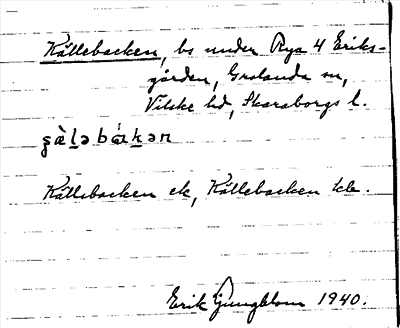 Källebacken, bs under Rya 4 Eriks-
gården, Grolanda sn,
Vilske hd, Skaraborgs l.
ʂὰl̲əbák̲ən
Källebacken ek, Källebacken kle.
Erik Ljungblom 1940.